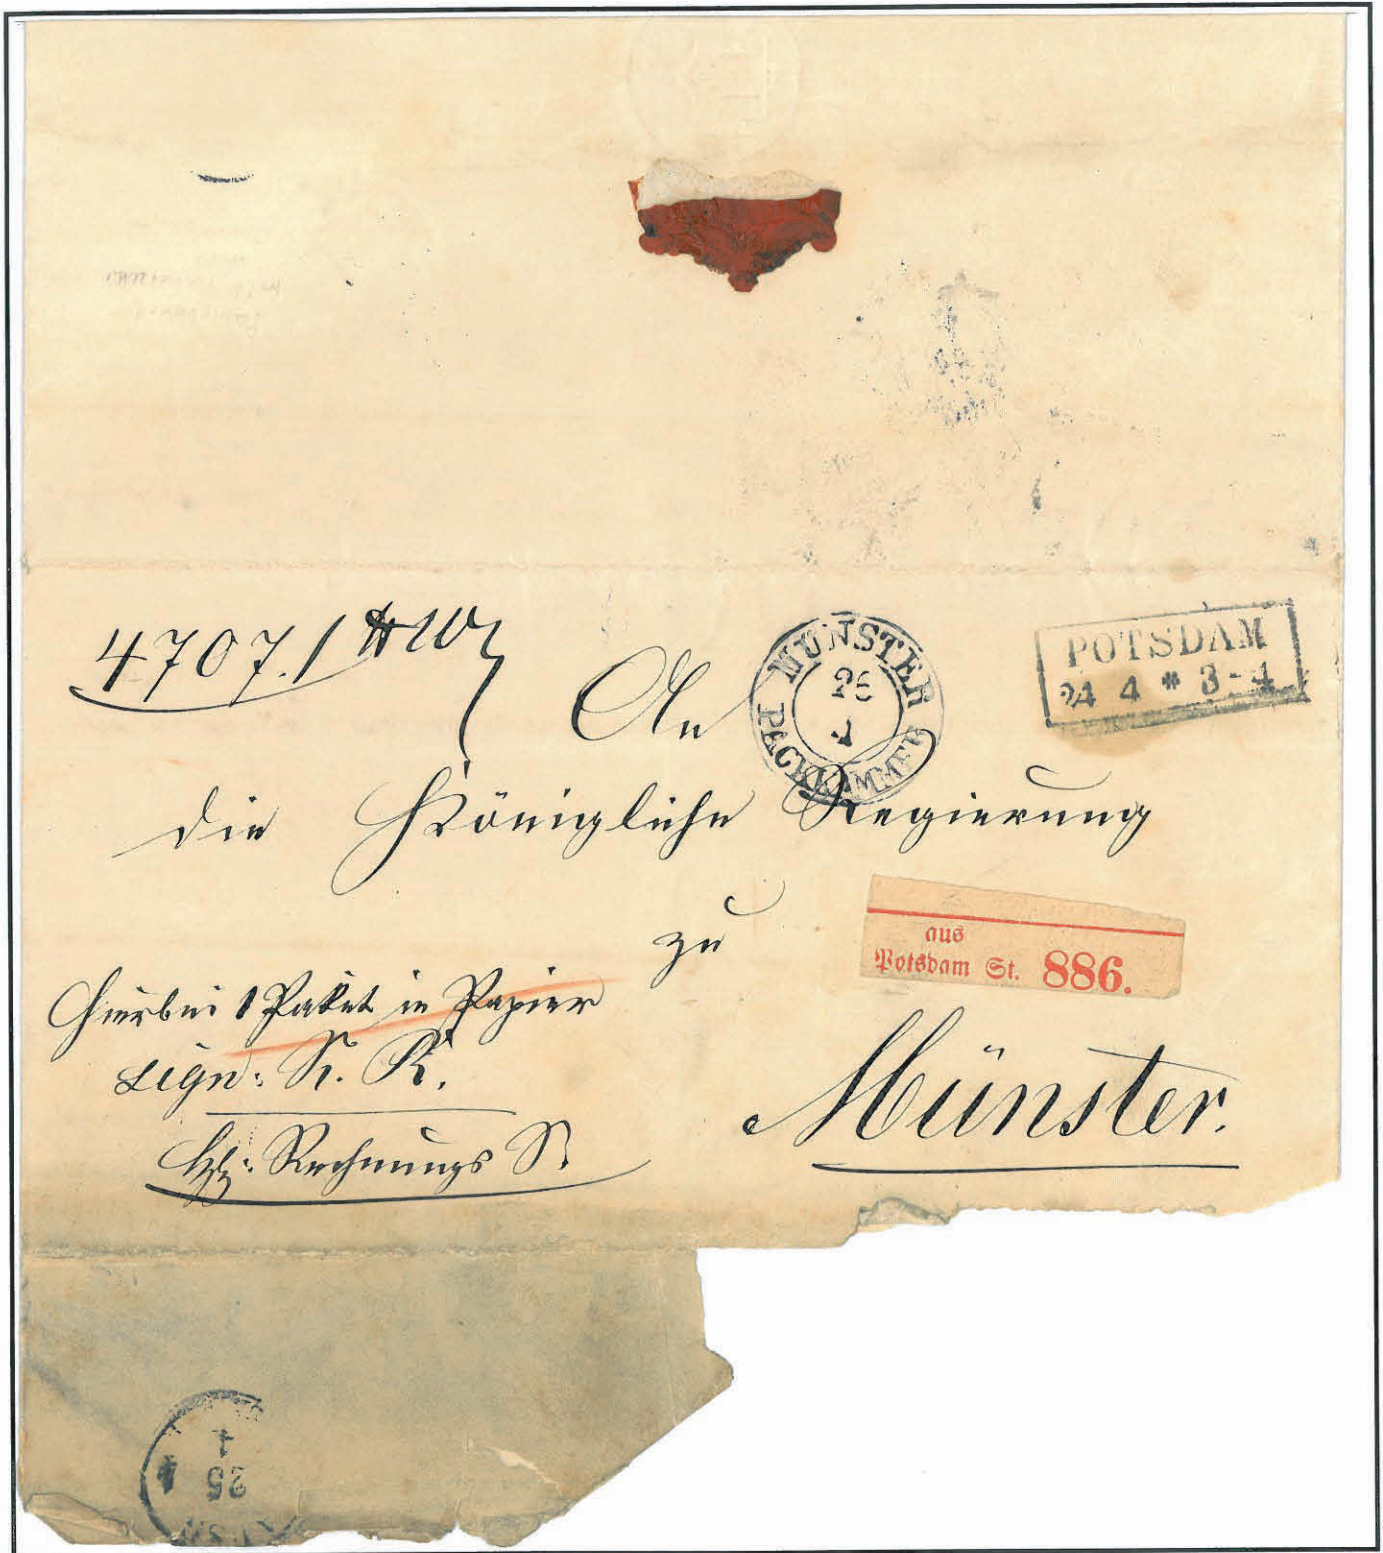 4707.
An
MÜNSTER
26
4
PACKKAMMER
POTSDAM
24 4 * 3-4
die Königliche Regierung
zu
aus
Potsdam St. 886.
Hierbei 1 Paket in Papier
sign: K. R.
Münster.
Rechnungs S.
1
25
4